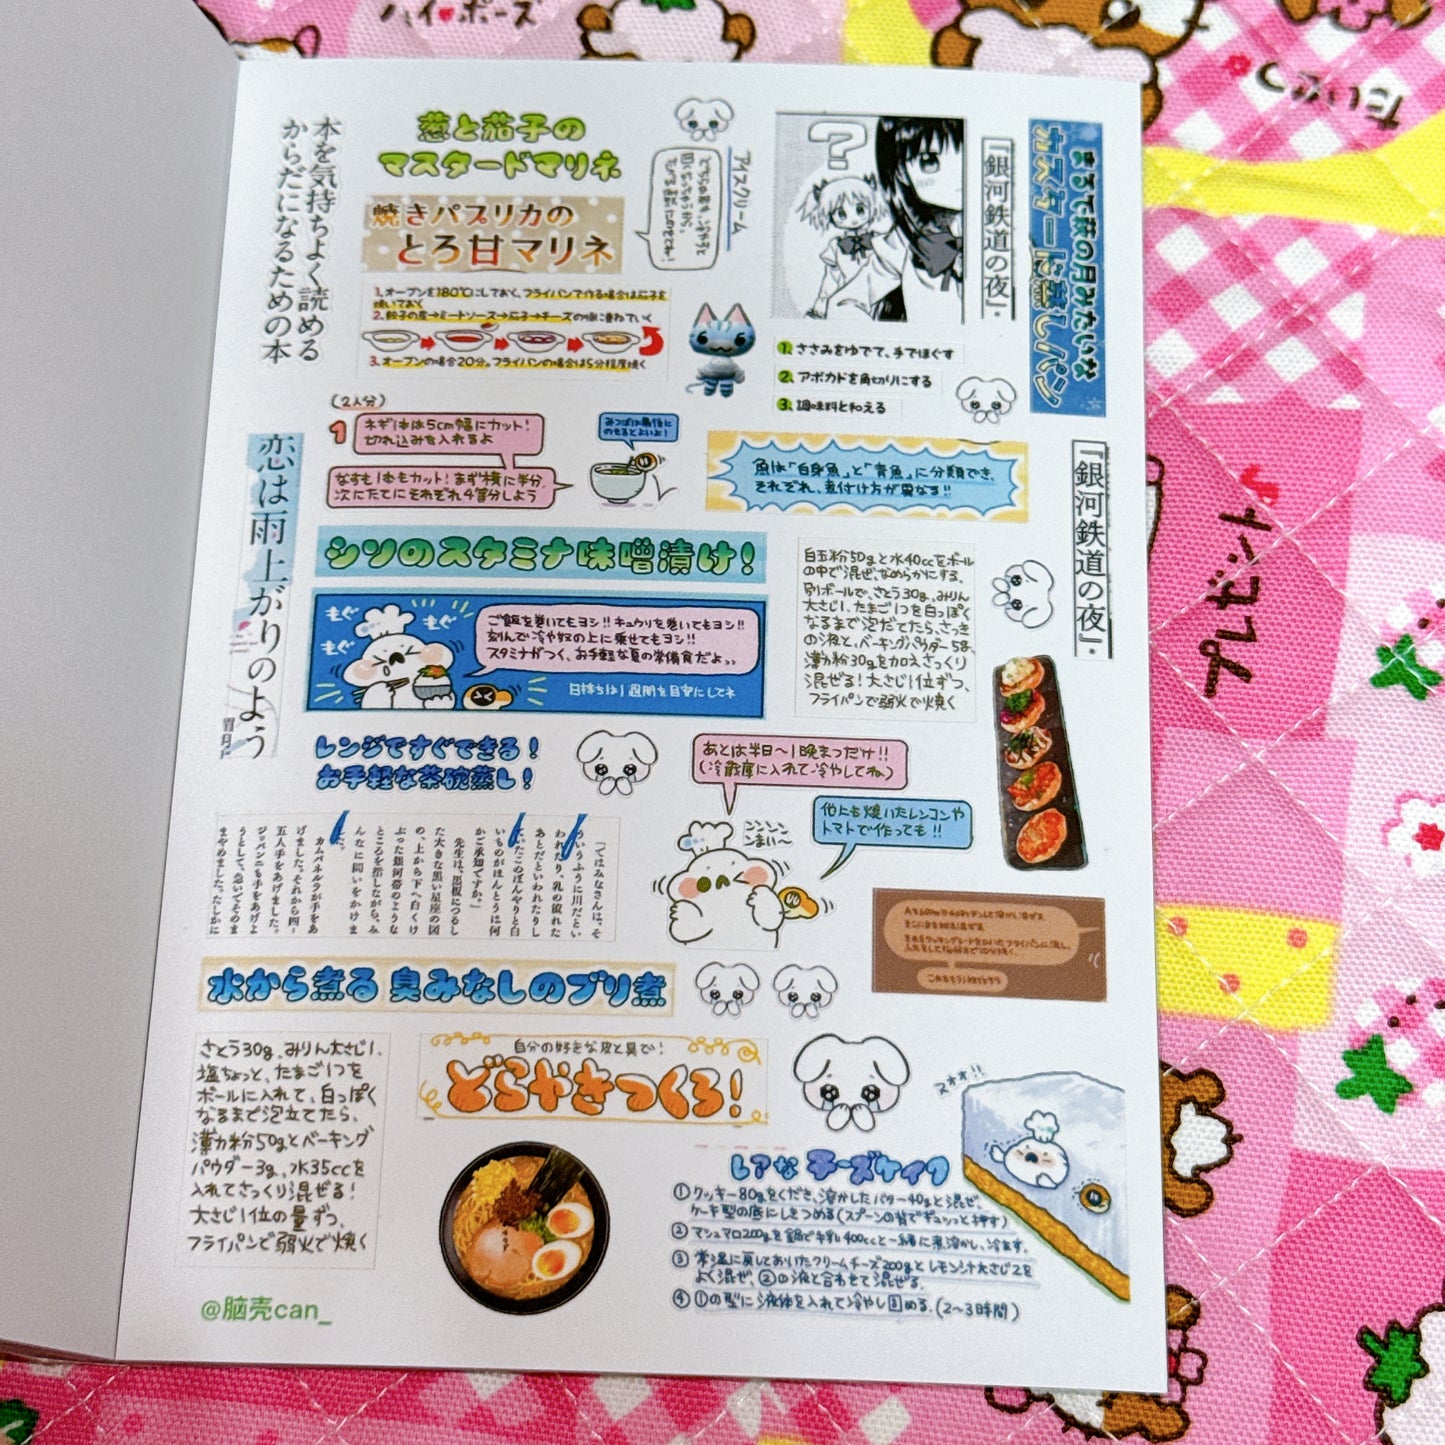 ハイ ポーズ
たいそう
リップ
本を気持ちよく読める
からだになるための本
葱と茄子の
マスタードマリネ
焼きパプリカの
とろ甘マリネ
1. オーブンを180℃にしておく、フライパンで作る場合は茄子を
焼いておく
2. 餃子の皮→ミートソース→茄子→チーズの順に重ねていく
3. オーブンの場合20分。フライパンの場合は5分程度焼く
アイスクリーム
?
『銀河鉄道の夜』.
まるでお菓の月みたいな
カスタード蒸しパン
1. ささみをゆでて、手でほぐす
2. アボカドを角切りにする
3. 調味料と和える
(2人分)
1
ネギ1本は5cm幅にカット!
切れ込みを入れるよ
なすも1本もカット! まず横に半分
次にたてにそれぞれ4等分しよう
みつばは最後に
のせるとよいよ!
魚は「白身魚」と「青魚」に分類でき、
それぞれ、煮付け方が異なる!!
『銀河鉄道の夜』.
恋は雨上がりのよう
眉月
シソのスタミナ味噌漬け!
もぐ
もぐ
もぐ
ご飯を巻いてもヨシ!! キュウリを巻いてもヨシ!!
刻んで冷や奴の上に乗せてもヨシ!!
スタミナがつく、お手軽な夏の常備食だよっっ
日持ちは1週間を目安にしてネ
白玉粉50gと水40ccをボール
の中で混ぜ、なめらかにする。
別ボールで、さとう30g、みりん
大さじ1、たまご1つを白っぽく
なるまで泡だてたら、さっき
の液と、ベーキングパウダー5g、
薄力粉30gを加えさっくり
混ぜる! 大さじ1位ずつ、
フライパンで弱火で焼く
レンジですぐできる!
お手軽な茶碗蒸し!
あとは半日〜1晩まつだけ!!
(冷蔵庫に入れて冷やしてね)
他にも焼いたレンコンや
トマトで作っても!!
ンンンン
ンまい〜
「ではみなさんは、そ
ういうふうに川だとい
われたり、乳の流れた
あとだといわれたりし
ていたこのぼんやりと白
いものがほんとうは何
かご承知ですか。」
先生は、黒板につるし
た大きな黒い星座の図
の、上から下へ白くけ
ぶった銀河帯のような
ところを指しながら、み
んなに問いをかけまし
た。
カムパネルラが手をあ
げました。それから四、
五人手をあげました。
ジョバンニも手をあげよ
うとして、急いでそのま
まやめました。たしかに
水から煮る 臭みなしのブリ煮
これももう1枚作ろう
さとう30g、みりん大さじ1、
塩ちょっと、たまご1つを
ボールに入れて、白っぽく
なるまで泡立てたら、
薄力粉50gとベーキング
パウダー3g、水35ccを
入れてさっくり混ぜる!
大さじ1位の量ずつ、
フライパンで弱火で焼く
自分の好きな皮と具で!
どらやきつくろ!
レアなチーズケイク
①クッキー80gをくだき、溶かしたバター40gと混ぜ、
ケーキ型の底にしきつめる(スプーンの背でギュッと押す)
②マシュマロ200gを鍋で牛乳400ccと一緒に煮溶かし、冷ます。
③常温に戻しておいたクリームチーズ200gとレモン汁大さじ2を
よく混ぜ、②の液と合わせて混ぜる。
④①の型に液体を入れて冷やし固める。(2〜3時間)
@脑壳can_